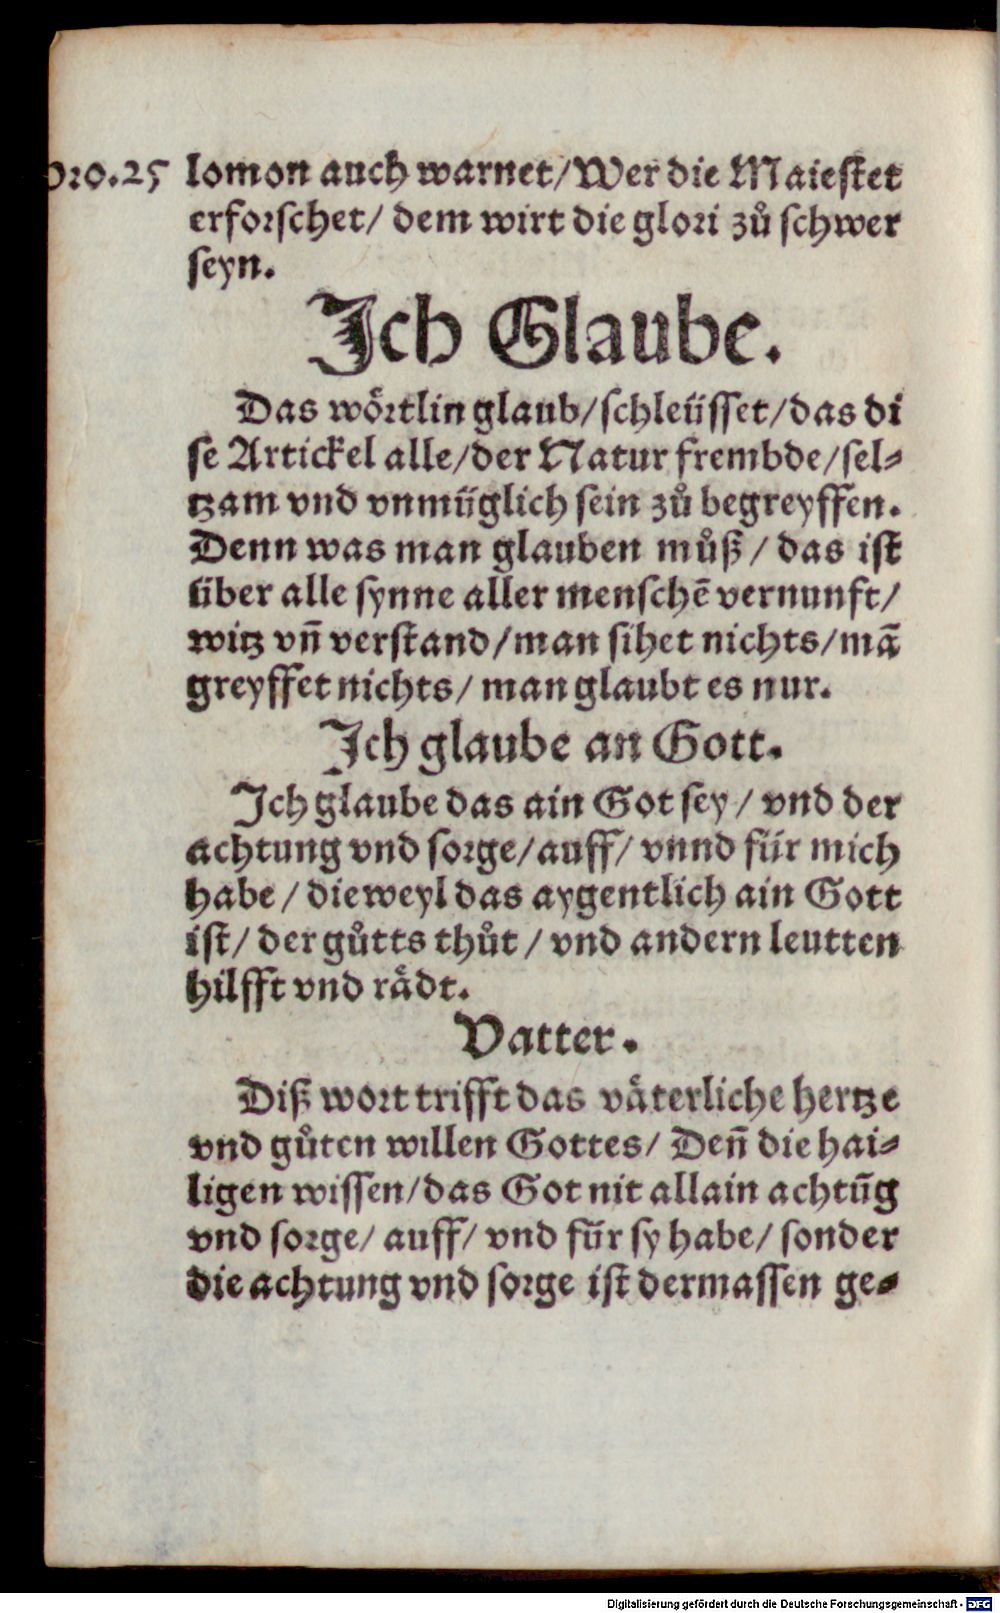 Pro.25 lomon auch warnet/ Wer die Maiestet
erforschet/ dem wirt die glori zů schwer
seyn.
Ich Glaube.
Das wörtlin glaub/ schleüsset/ das di
se Artickel alle/ der Natur frembde/ sel⸗
tzam vnd vnmüglich sein zů begreyffen.
Denn was man glauben můß/ das ist
über alle synne aller menschē vernunft/
witz vñ verstand/ man sihet nichts/ mā
greyffet nichts/ man glaubt es nur.
Ich glaube an Gott.
Ich glaube das ain Got sey/ vnd der
achtung vnd sorge/ auff/ vnnd für mich
habe/ dieweyl das aygentlich ain Gott
ist/ der gůtts thůt/ vnd andern leutten
hilfft vnd rädt.
Vatter.
Diß wort trifft das väterliche hertze
vnd gůten willen Gottes/ Deñ die hai⸗
ligen wissen/ das Got nit allain achtūg
vnd sorge/ auff/ vnd für sy habe/ sonder
die achtung vnd sorge ist dermassen ge⸗
Digitalisierung gefördert durch die Deutsche Forschungsgemeinschaft - DFG